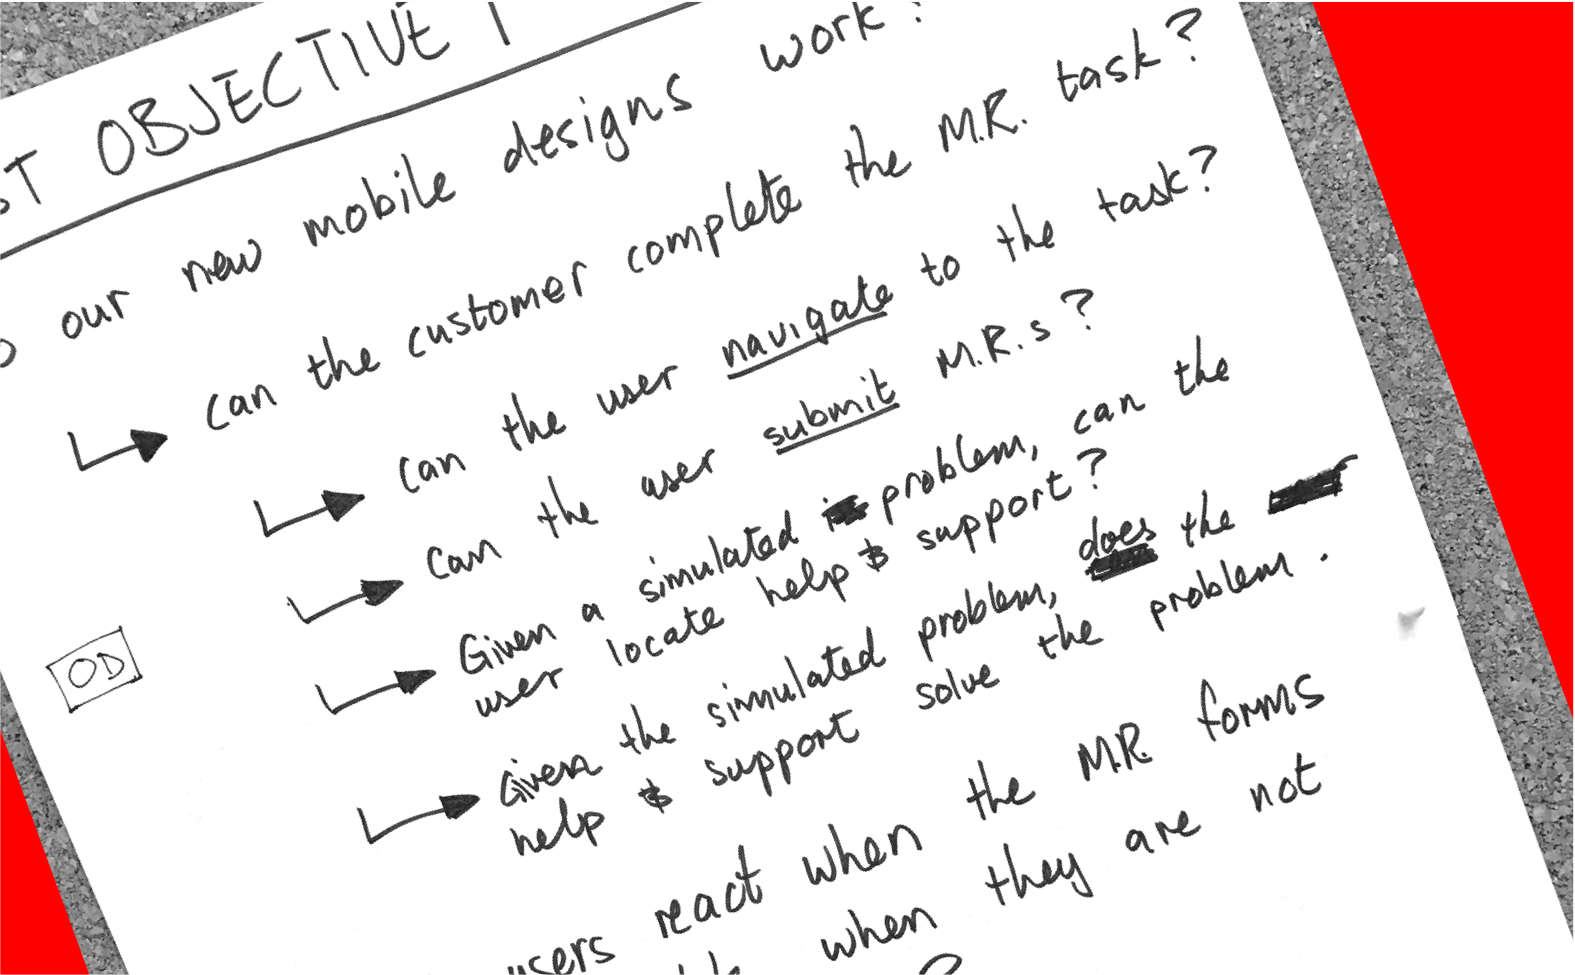 OBJECTIVE
our new mobile designs work?
Can the customer complete the M.R. task?
Can the user navigate to the task?
Can the user submit M.R.s?
Given a simulated problem, can the
user locate help & support?
Given the simulated problem, does the
help & support solve the problem.
OD
users react when the M.R. forms
when they are not
?